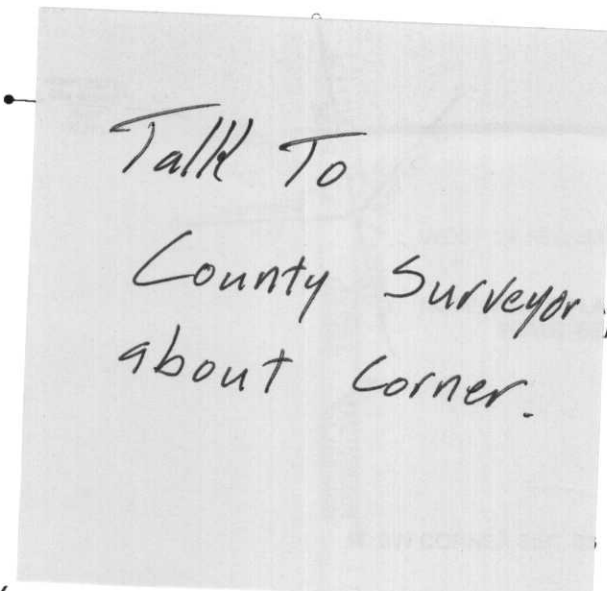 Talk To
County Surveyor
about Corner.